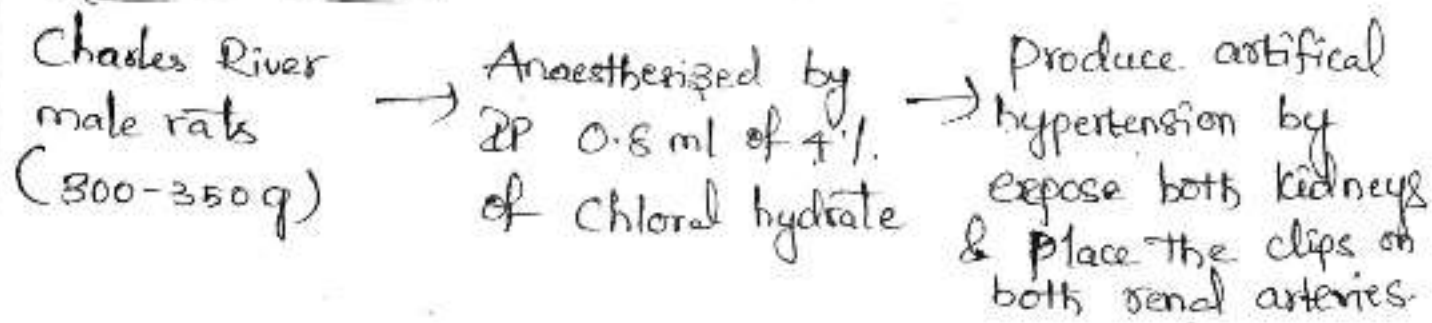 Charles River
male rats
(300-350g)
→ Anaesthesized by
IP 0.8 ml of 4%.
of Chloral hydrate
→ Produce artifical
hypertension by
expose both kidneys
& Place the clips on
both renal arteries.